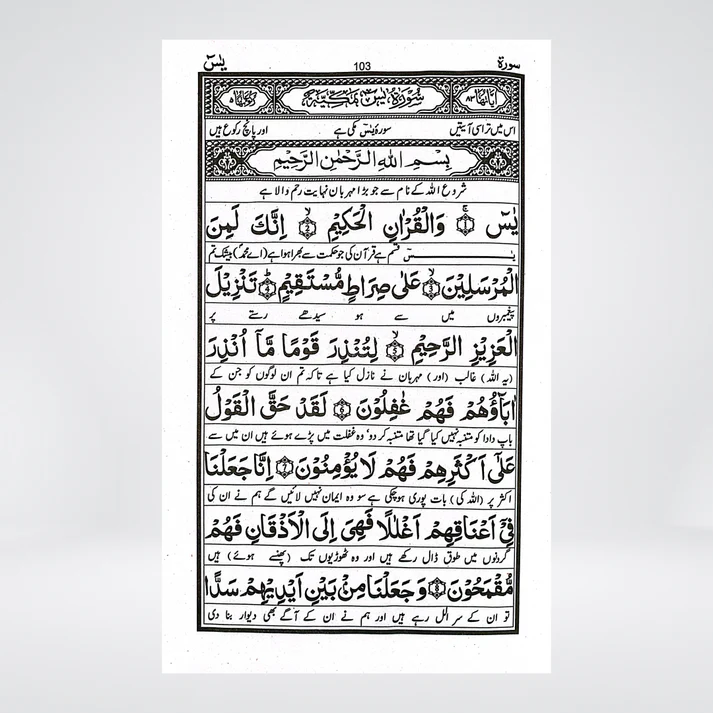 سورۃ 103 یٰسٓ
اٰیاتها ٨٣ سُوْرَةُ يٰسٓ مَكِّيَّةٌ رکوعاتها ٥
اس میں تراسی آیتیں سورۂ یٰسٓ مکی ہے اور پانچ رکوع ہیں
بِسْمِ اللهِ الرَّحْمٰنِ الرَّحِيْمِ
شروع اللہ کے نام سے جو بڑا مہربان نہایت رحم والا ہے
يٰسٓ ۚ ﴿1﴾ وَالْقُرْاٰنِ الْحَكِيْمِ ۙ ﴿2﴾ اِنَّكَ لَمِنَ
یٰسٓ قسم ہے قرآن کی جو حکمت سے بھرا ہوا ہے (اے محمدؐ) بیشک تم
الْمُرْسَلِيْنَ ۙ ﴿3﴾ عَلٰى صِرَاطٍ مُّسْتَقِيْمٍ ؕ ﴿4﴾ تَنْزِيْلَ
پیغمبروں میں سے ہو سیدھے رستے پر
الْعَزِيْزِ الرَّحِيْمِ ۙ ﴿5﴾ لِتُنْذِرَ قَوْمًا مَّاۤ اُنْذِرَ
(یہ اللہ) غالب (اور) مہربان نے نازل کیا ہے تاکہ تم ان لوگوں کو جن کے
اٰبَآؤُهُمْ فَهُمْ غٰفِلُوْنَ ﴿6﴾ لَقَدْ حَقَّ الْقَوْلُ
باپ دادا کو متنبہ نہیں کیا گیا تھا متنبہ کر دو' وہ غفلت میں پڑے ہوئے ہیں ان میں سے
عَلٰۤى اَكْثَرِهِمْ فَهُمْ لَا يُؤْمِنُوْنَ ﴿7﴾ اِنَّا جَعَلْنَا
اکثر پر (اللہ کی) بات پوری ہوچکی ہے سو وہ ایمان نہیں لائیں گے ہم نے ان کی
فِيْۤ اَعْنَاقِهِمْ اَغْلٰلًا فَهِيَ اِلَى الْاَذْقَانِ فَهُمْ
گردنوں میں طوق ڈال رکھے ہیں اور وہ ٹھوڑیوں تک (پھنسے ہوئے) ہیں
مُّقْمَحُوْنَ ﴿8﴾ وَجَعَلْنَا مِنْۢ بَيْنِ اَيْدِيْهِمْ سَدًّا
تو ان کے سر الل رہے ہیں اور ہم نے ان کے آگے بھی دیوار بنا دی